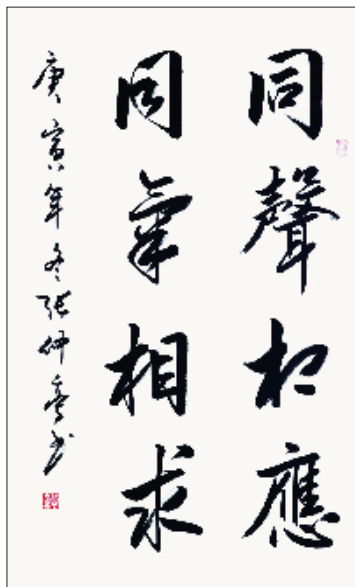 同聲相應
同氣相求
庚寅年冬張仲亭书